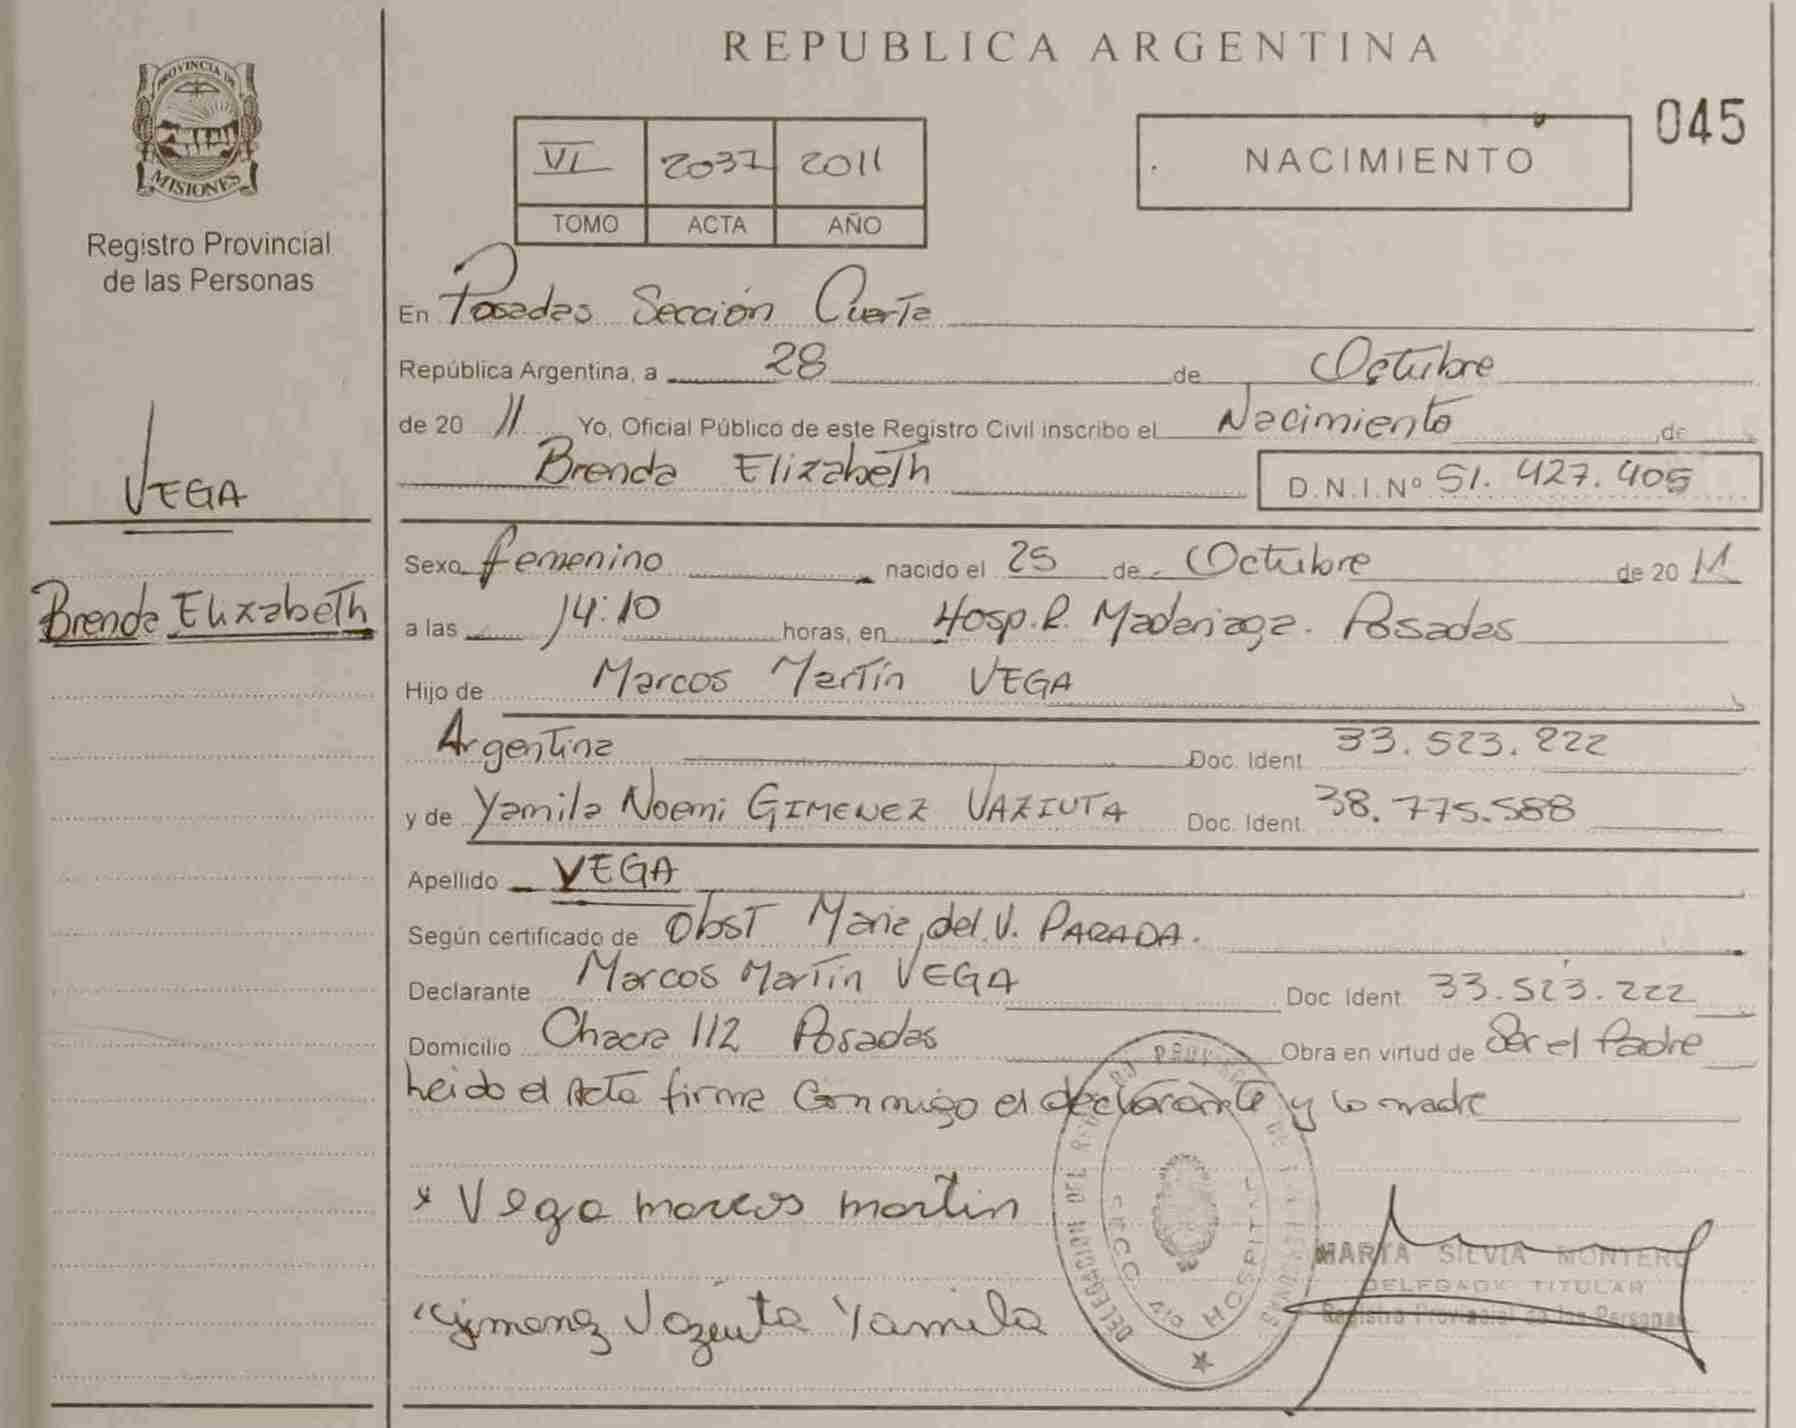 REPUBLICA ARGENTINA
PROVINCIA DE
MISIONES
Registro Provincial
de las Personas
VI 2037 2011
TOMO ACTA AÑO
NACIMIENTO
045
En Posadas Sección Cuarta
República Argentina, a 28 de Octubre
de 20 11 Yo, Oficial Público de este Registro Civil inscribo el Nacimiento de
Brenda Elizabeth D.N.I.Nº 51.427.405
VEGA
Brenda Elizabeth
Sexo femenino nacido el 25 de Octubre de 20 11
a las 14:10 horas, en Hosp. R. Madariaga. Posadas
Hijo de Marcos Martín VEGA
Argentina Doc. Ident. 33.523.222
y de Yamila Noemi GIMENEZ VAZIUTA Doc. Ident. 38.775.588
Apellido VEGA
Según certificado de Obst Maria del V. PARADA.
Declarante Marcos Martín VEGA Doc. Ident. 33.523.222
Domicilio Chacra 112 Posadas Obra en virtud de Ser el Padre
Leido el Acta firma Conmigo el declarante y la madre
x Vega marcos martin
Gimenez Vaziuta Yamila
DELEGACION DEL REGISTRO PROVINCIAL DE LAS PERSONAS
SECC. 4ta HOSPITAL
MARTA SILVIA MONTERO
DELEGADA TITULAR
Registro Provincial de las Personas